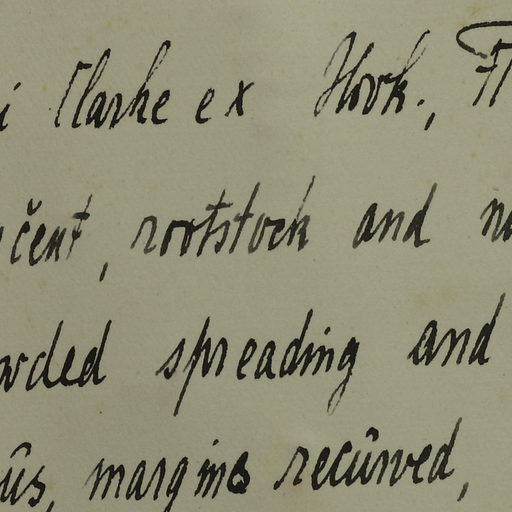 i Clarke ex Hook., Fl
čent, rootstock and n
owded spreading and
ûs, margins recûrved,